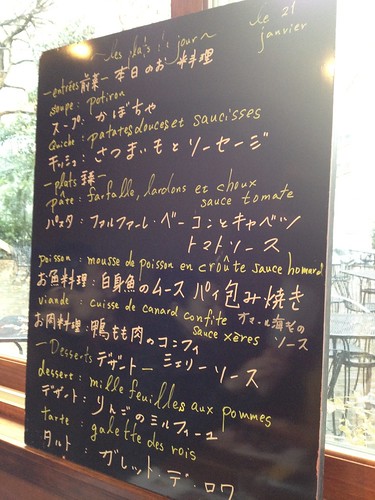 le 21
janvier
~ les plats du jour ~
— entrées 前菜 — 本日のお料理
soupe : potiron
スープ : かぼちゃ
Quiche : patates douces et saucisses
キッシュ : さつまいもとソーセージ
— plats 主菜 —
pâte : farfalle, lardons et choux
sauce tomate
パスタ : ファルファーレ・ベーコンとキャベツ
トマトソース
poisson : mousse de poisson en croûte sauce homard
お魚料理 : 白身魚のムース パイ包み焼き
オマール海老の
ソース
viande : cuisse de canard confite
sauce xérès
お肉料理 : 鴨もも肉のコンフィ
シェリーソース
— Desserts デザート —
dessert : mille feuilles aux pommes
デザート : りんごのミルフィーユ
tarte : galette des rois
タルト : ガレット・デ・ロワ